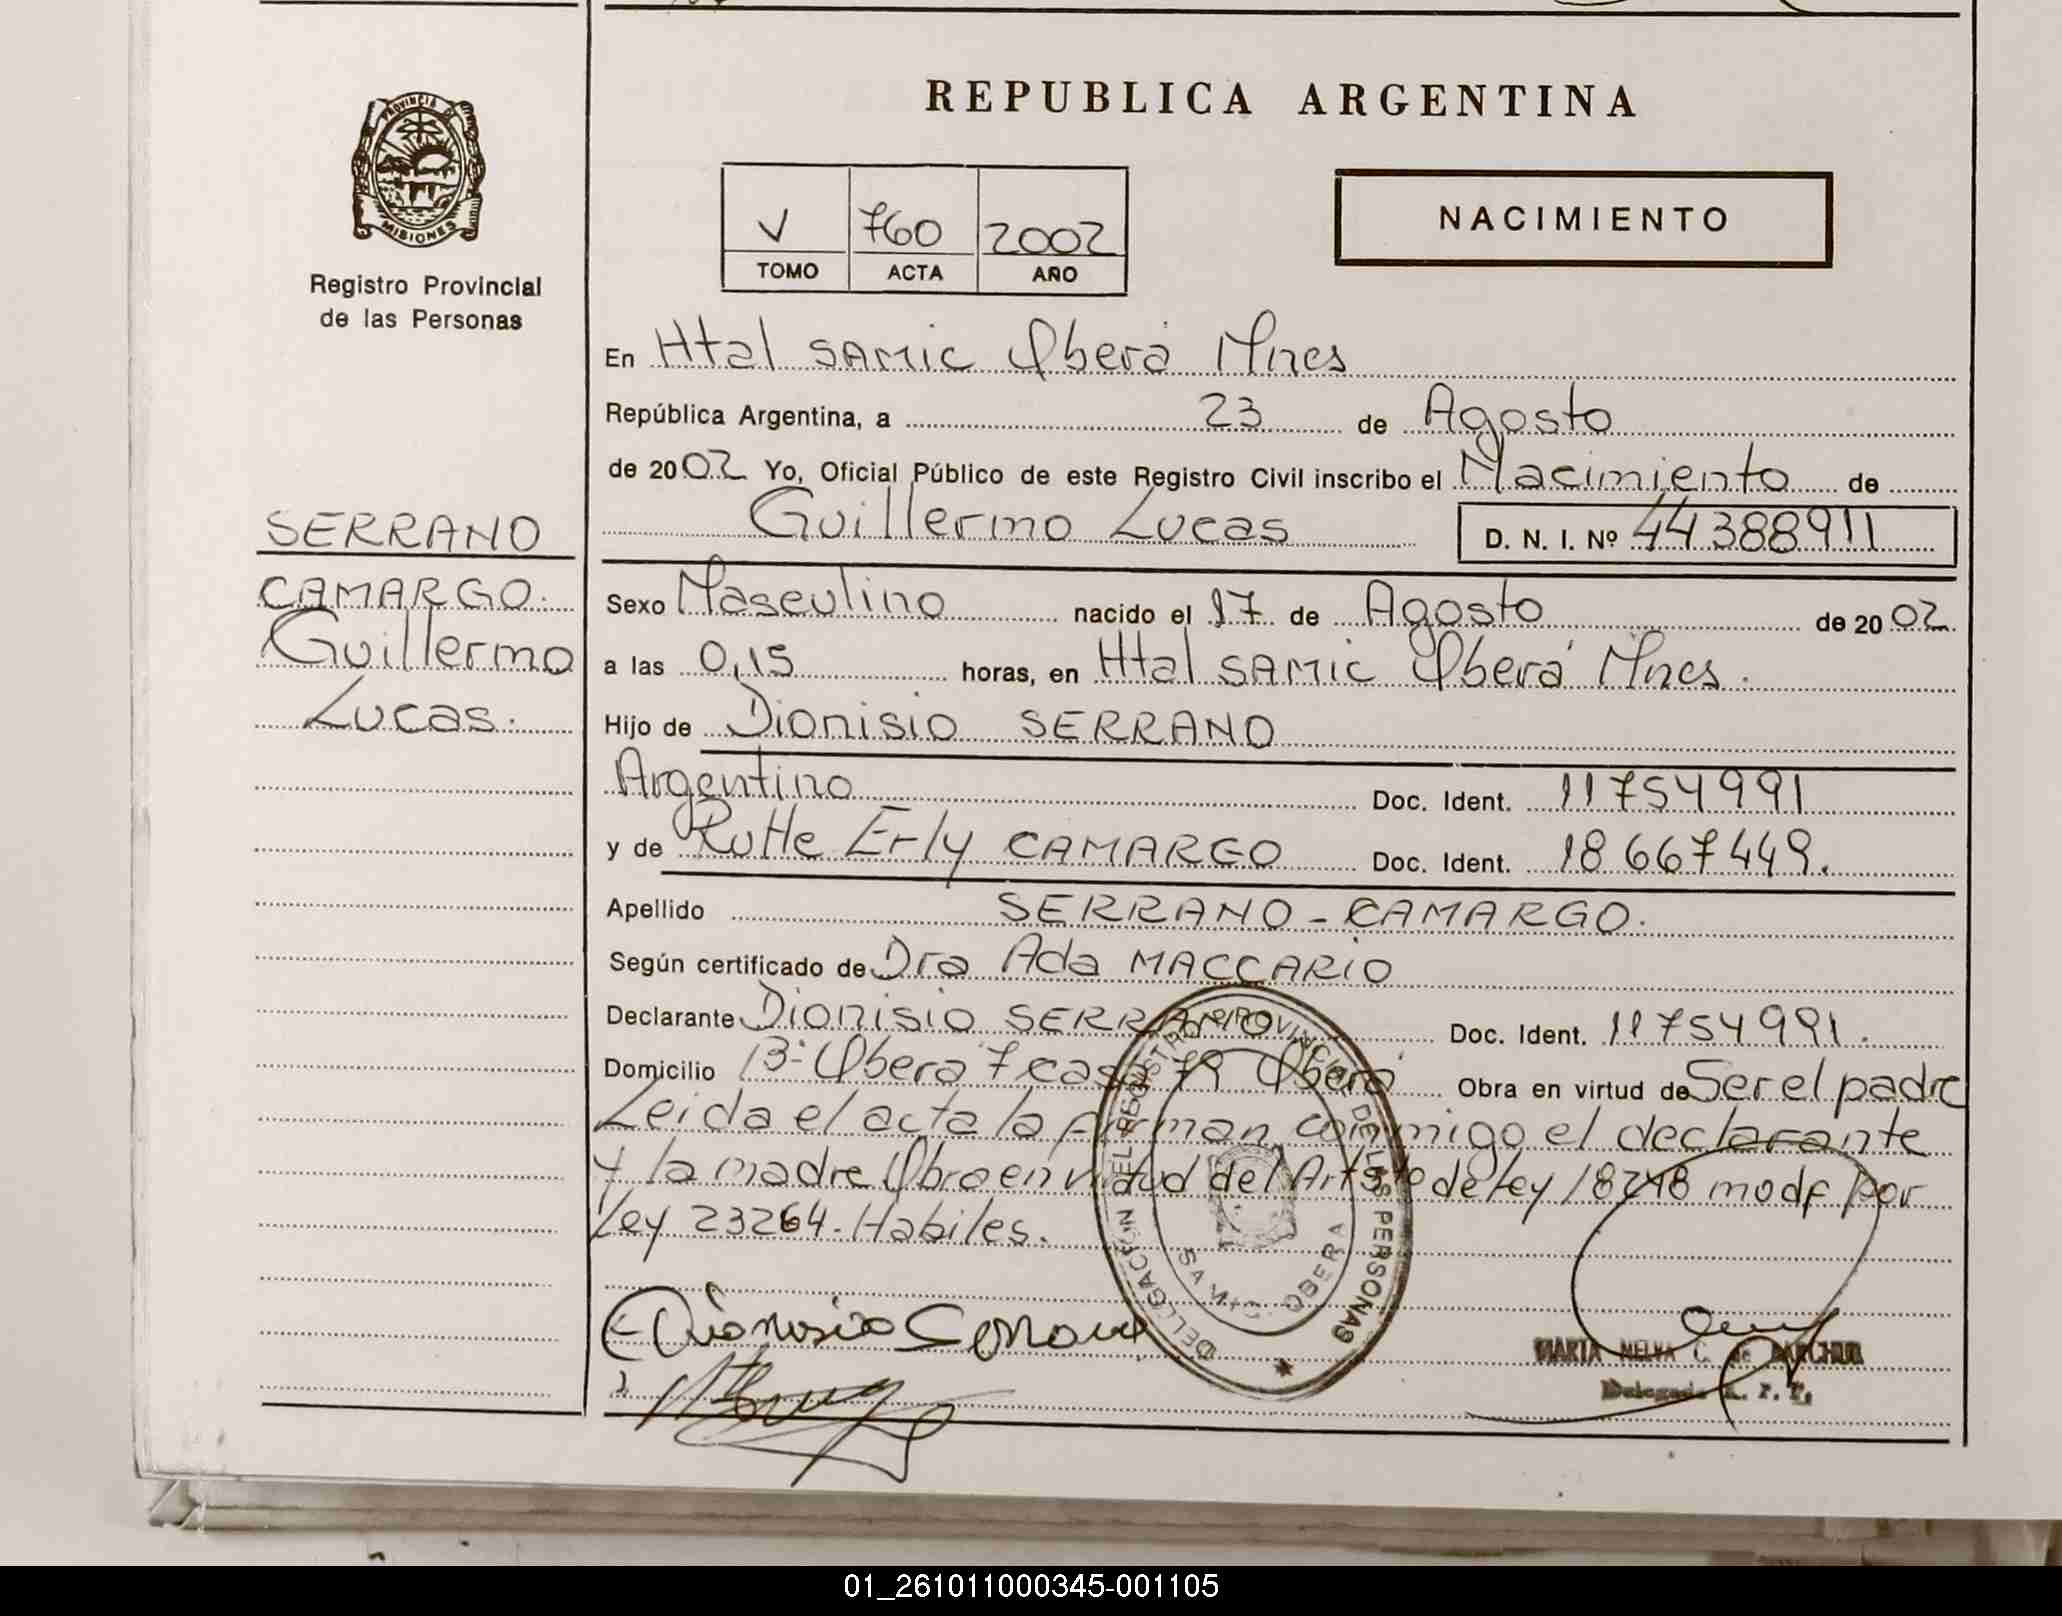 REPUBLICA ARGENTINA
PROVINCIA DE
MISIONES
Registro Provincial
de las Personas
V 760 2002
TOMO ACTA AÑO
NACIMIENTO
En Htal SAMIC Oberá Mnes
República Argentina, a 23 de Agosto
de 2002 Yo, Oficial Público de este Registro Civil inscribo el Nacimiento de
Guillermo Lucas D. N. I. Nº 44388911
SERRANO
CAMARGO.
Guillermo
Lucas.
Sexo Masculino nacido el 17 de Agosto de 2002
a las 0,15 horas, en Htal SAMIC Oberá Mnes.
Hijo de Dionisio SERRANO
Argentino Doc. Ident. 11754991
y de Rutte Erly CAMARGO Doc. Ident. 18667449.
Apellido SERRANO-CAMARGO.
Según certificado de Dra Ada MACCARIO
Declarante Dionisio SERRANO Doc. Ident. 11754991.
Domicilio Bº Oberá 7 casa 79 Oberá Obra en virtud de Ser el padre
Leida el acta la firman conmigo el declarante
y la madre Obra en virtud del Art 5to de ley 18248 modf por
Ley 23264-Habiles.
DELEGACION DEL REGISTRO PROVINCIAL DE LAS PERSONAS
SAMIC. OBERA
Dionisio Serrano
MARTA NELVA C. de
Delegada R. P. P.
01_261011000345-001105